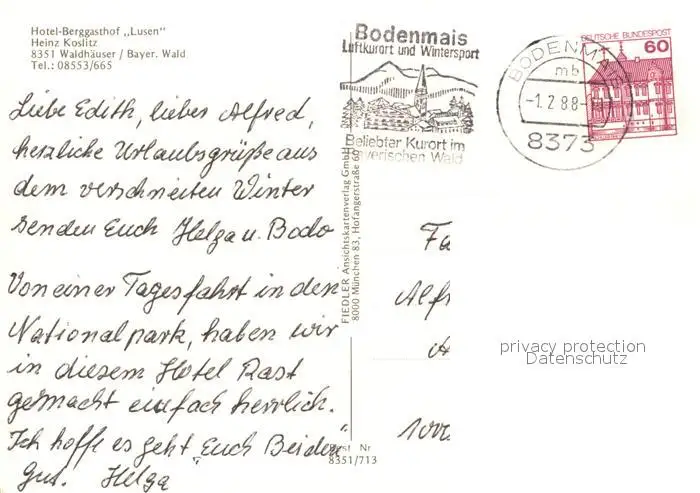 Hotel-Berggasthof „Lusen"
Heinz Koslitz
8351 Waldhäuser / Bayer. Wald
Tel.: 08553/665
Liebe Edith, lieber Alfred,
herzliche Urlaubsgrüße aus
dem verschneiten Winter
senden Euch Helga u. Bodo
Von einer Tagesfahrt in den
Nationalpark, haben wir
in diesem Hotel Rast
gemacht einfach herrlich.
Ich hoffe es geht Euch Beiden
gut. Helga
FIEDLER Ansichtskartenverlag GmbH
8000 München 83, Hofangerstraße 60
Best Nr
8351/713
Bodenmais
Luftkurort und Wintersport
Beliebter Kurort im
Bayerischen Wald
BODENMAIS
mb
-1.2.88-
8373
DEUTSCHE BUNDESPOST
60
Fa
Alf
A
1000
privacy protection
Datenschutz